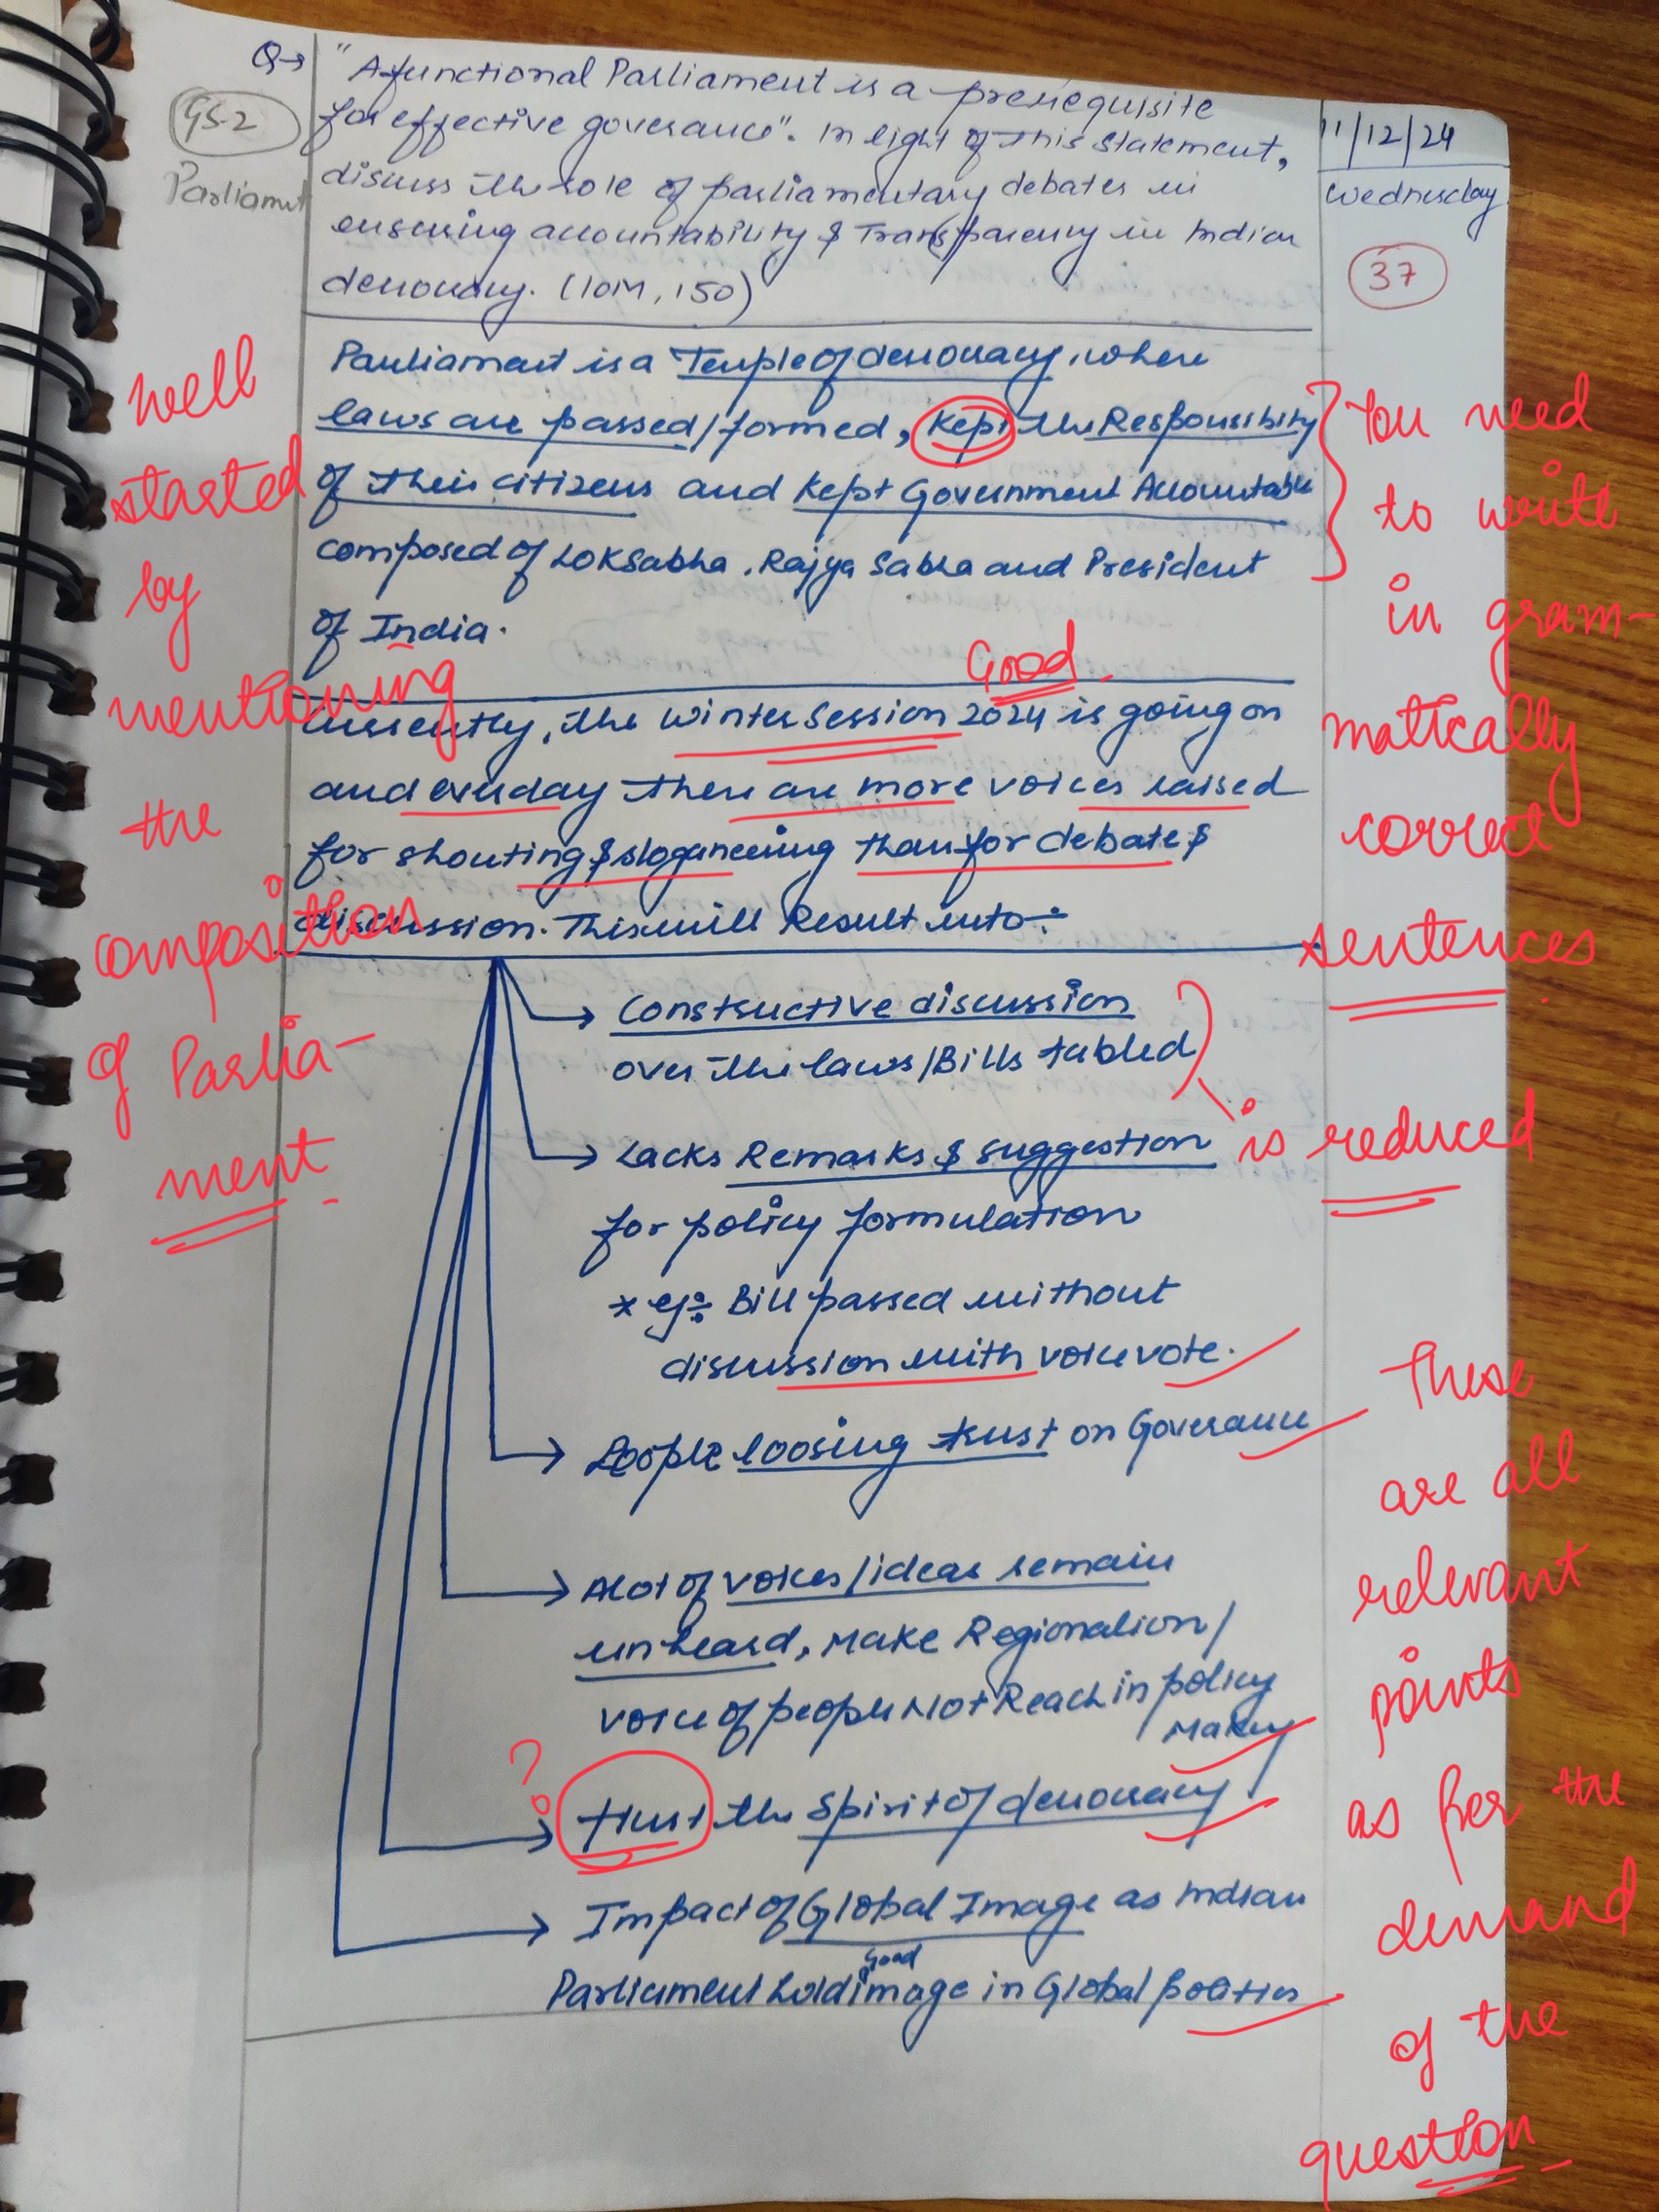 Q→ "A functional Parliament is a prerequisite
for effective goverance". In light of this statement,
discuss the role of parliamentary debates in
ensuring accountability & Transparency in Indian
democracy. (10M, 150)
GS-2
Parliament
11/12/24
Wednesday
37
Parliament is a Temple of democracy, where
laws are passed/formed, Kept the Responsibility
of their citizens and Kept Government Accountable
composed of LokSabha, Rajya Sabha and President
of India.
Good
Currently, the Winter Session 2024 is going on
and everyday there are more voices raised
for shouting & sloganeering than for debate &
discussion. This will Result into:-
→ Constructive discussion
over the laws/Bills tabled
→ Lacks Remarks & suggestion
for policy formulation
* eg:- Bill passed without
discussion with voice vote.
→ People loosing trust on Goverance
→ A lot of voices/ideas remain
unheard, Make Regionalion/
voice of people Not Reach in policy
Making
? → Hurt the Spirit of democracy
→ Impact of Global Image as Indian
Parliament hold Good image in Global politics
well
started
by
mentioning
the
composition
of Parlia-
ment
You need
to write
in gram-
matically
correct
sentences
is reduced
These
are all
relevant
points
as per the
demand
of the
question